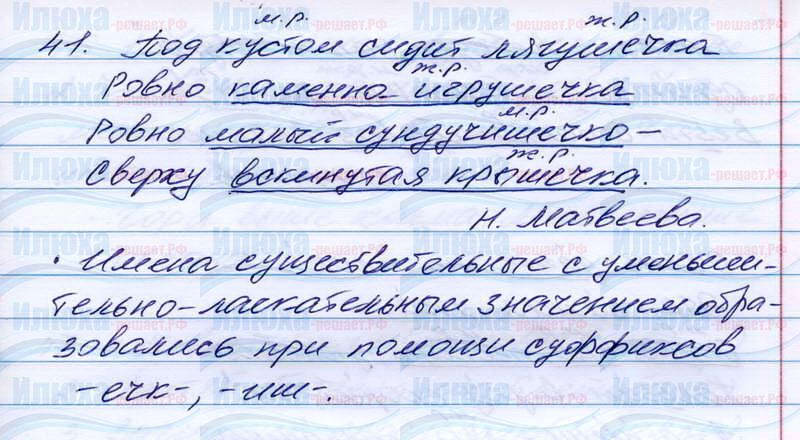 м.р. ж.р.
41. Под кустом сидит лягушечка
ж.р.
Ровно каменна игрушечка
м.р.
Ровно малый сундучишечко –
ж.р.
Сверху вскинутая крышечка.
Н. Матвеева.
· Имена существительные с уменьши-
тельно-ласкательным значением обра-
зовались при помощи суффиксов
-ечк-, -иш-.